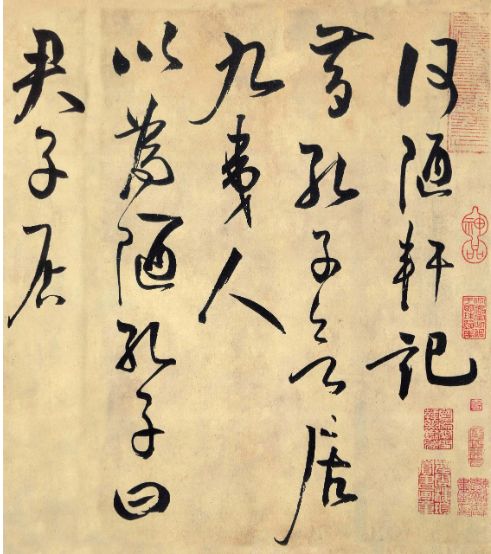 何陋軒記
昔孔子欲居
九夷人
以為陋孔子曰
君子居
神品